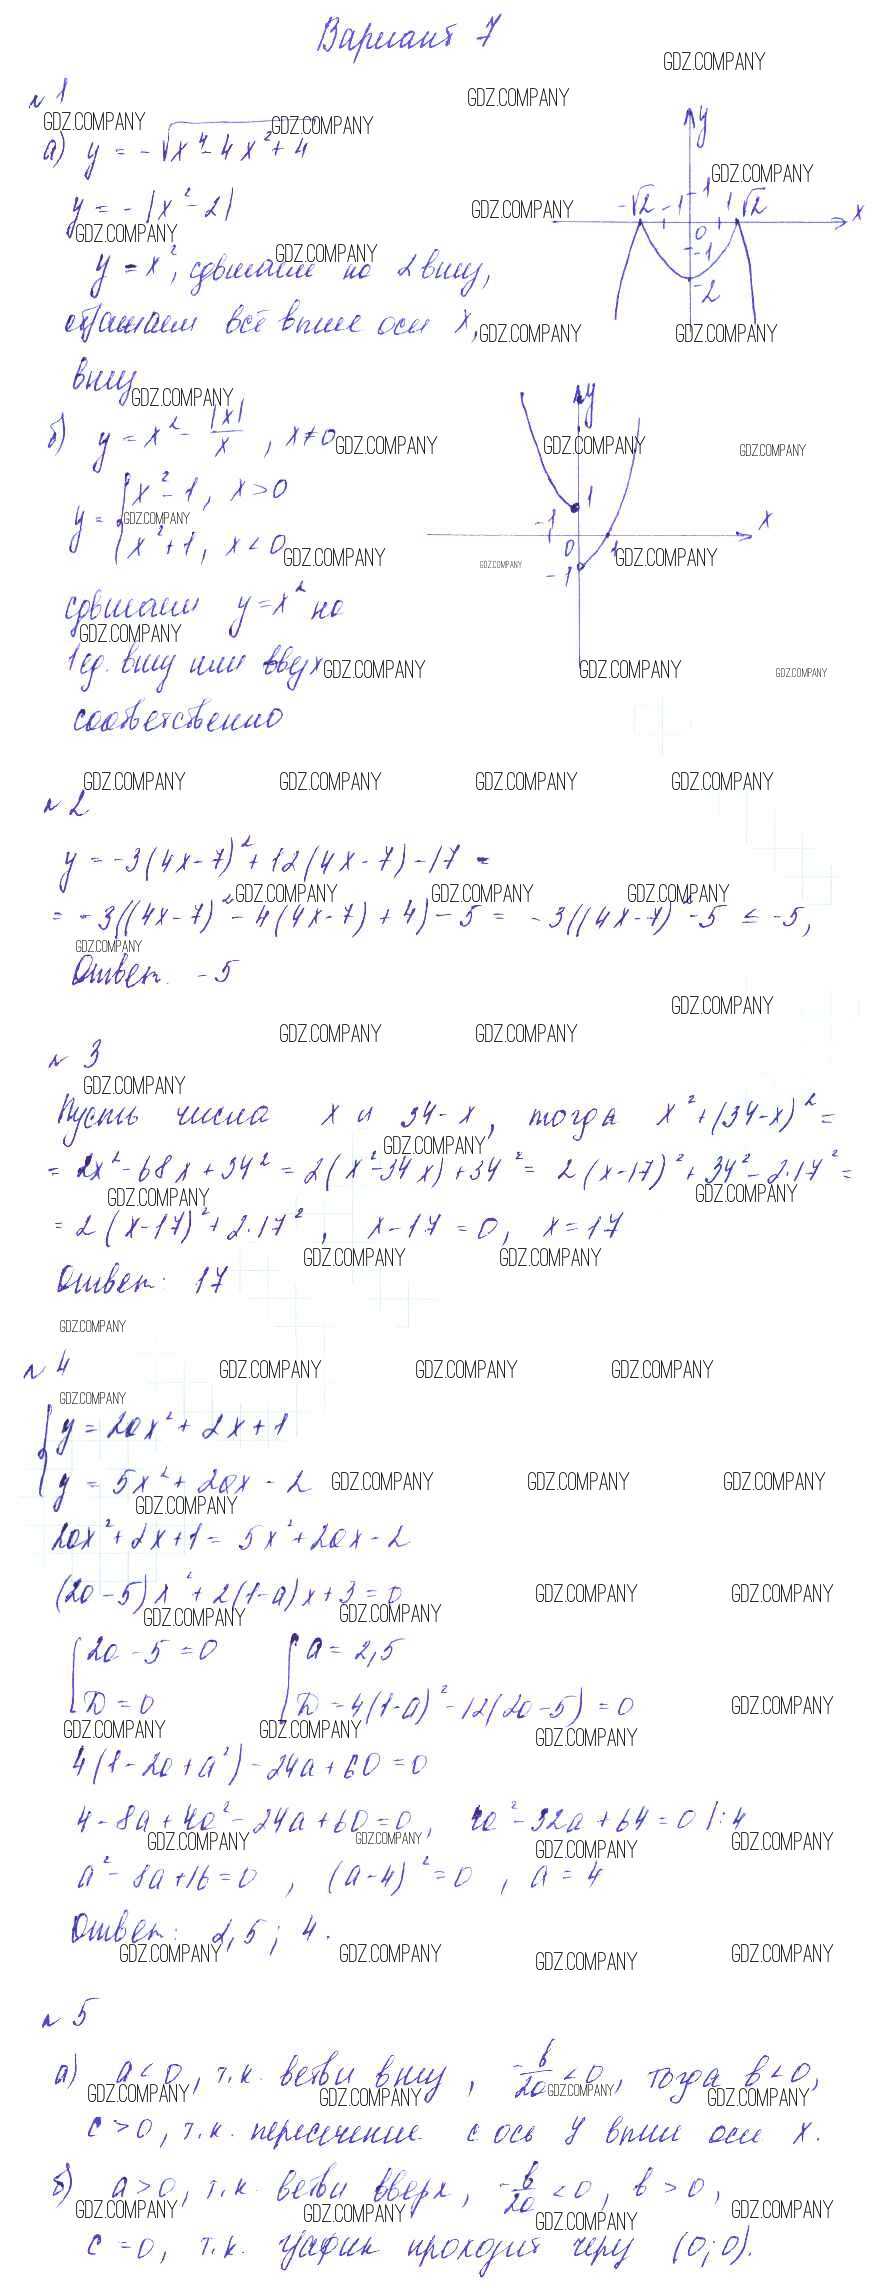 Вариант 7
№ 1
а) y = -√x⁴-4x²+4
y = -|x²-2|
y = x², сдвигаем на 2 вниз,
отражаем всё выше оси x,
вниз
y
-√2 -1 1 1 √2 x
0
-1
-2
б) y = x² - |x|/x , x≠0
y = { x²-1, x>0
x²+1, x<0
сдвигаем y=x² на
1 ед. вниз или вверх
соответственно
y
1
-1 x
0 1
-1
№ 2
y = -3(4x-7)²+12(4x-7)-17 =
= -3((4x-7)²-4(4x-7)+4)-5 = -3((4x-7)²-5 ≤ -5,
Ответ: -5
№ 3
Пусть числа x и 34-x, тогда x²+(34-x)² =
= 2x²-68x+34² = 2(x²-34x)+34² = 2(x-17)²+34²-2·17² =
= 2(x-17)²+2·17², x-17=0, x=17
Ответ: 17
№ 4
{ y = 2ax²+2x+1
y = 5x²+2ax-2
2ax²+2x+1 = 5x²+2ax-2
(2a-5)x²+2(1-a)x+3=0
[ 2a-5=0 [ a=2,5
D=0 D=4(1-a)²-12(2a-5)=0
4(1-2a+a²)-24a+60=0
4-8a+4a²-24a+60=0, 4a²-32a+64=0 |:4
a²-8a+16=0, (a-4)²=0, a=4
Ответ: 2,5; 4.
№ 5
а) a<0, т.к. ветви вниз, -b/2a<0, тогда b<0,
c>0, т.к. пересечение с ось y выше оси x.
б) a>0, т.к. ветви вверх, -b/2a<0, b>0,
c=0, т.к. график проходит через (0;0).
GDZ.COMPANY